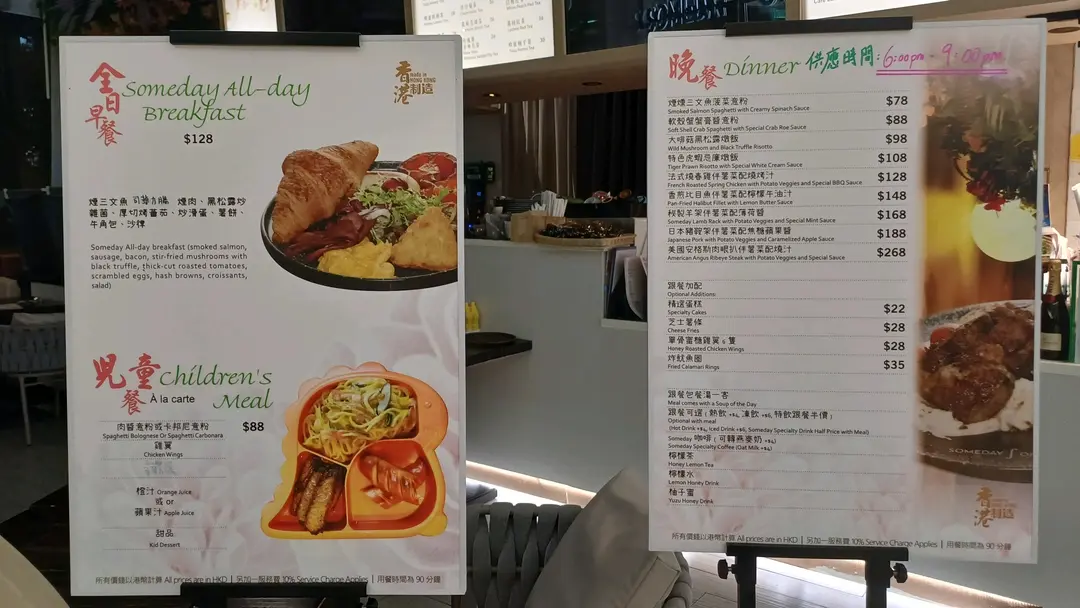 全日早餐
Someday All-day
Breakfast
香港制造
made in
HONG KONG
$128
煙三文魚 司華力腸 煙肉、黑松露炒
雜菌、厚切烤蕃茄、炒滑蛋、薯餅、
牛角包、沙律
Someday All-day breakfast (smoked salmon,
sausage, bacon, stir-fried mushrooms with
black truffle, thick-cut roasted tomatoes,
scrambled eggs, hash browns, croissants,
salad)
兒童餐
Children's
Meal
À la carte
肉醬意粉或卡邦尼意粉
$88
Spaghetti Bolognese Or Spaghetti Carbonara
雞翼
Chicken Wings
橙汁 Orange Juice
或 or
蘋果汁 Apple Juice
甜品
Kid Dessert
所有價錢以港幣計算 All prices are in HKD | 另加一服務費 10% Service Charge Applies | 用餐時間為 90 分鐘
晚餐 Dinner 供應時間: 6:00pm - 9:00pm
煙燻三文魚菠菜意粉 $78
Smoked Salmon Spaghetti with Creamy Spinach Sauce
軟殼蟹蟹膏醬意粉 $88
Soft Shell Crab Spaghetti with Special Crab Roe Sauce
大啡菇黑松露燉飯 $98
Wild Mushroom and Black Truffle Risotto
特色虎蝦忌廉燉飯 $108
Tiger Prawn Risotto with Special White Cream Sauce
法式燒春雞伴薯菜配燒烤汁 $128
French Roasted Spring Chicken with Potato Veggies and Special BBQ Sauce
香煎比目魚伴薯菜配檸檬牛油汁 $148
Pan-Fried Halibut Fillet with Lemon Butter Sauce
秘製羊架伴薯菜配薄荷醬 $168
Someday Lamb Rack with Potato Veggies and Special Mint Sauce
日本豬鞍架伴薯菜配焦糖蘋果醬 $188
Japanese Pork with Potato Veggies and Caramelized Apple Sauce
美國安格斯肉眼扒伴薯菜配燒汁 $268
American Angus Ribeye Steak with Potato Veggies and Special Sauce
跟餐加配
Optional Additions
精選蛋糕 $22
Specialty Cakes
芝士薯條 $28
Cheese Fries
單骨蜜糖雞翼 6 隻 $28
Honey Roasted Chicken Wings
炸魷魚圈 $35
Fried Calamari Rings
跟餐包餐湯一客
Meal comes with a Soup of the Day
跟餐可選 ( 熱飲 +$4, 凍飲 +$6, 特飲跟餐半價 )
Optional with meal
(Hot Drink +$4, Iced Drink +$6, Someday Specialty Drink Half Price with Meal)
Someday 咖啡 ( 可轉燕麥奶 +$4 )
Someday Specialty Coffee (Oat Milk +$4)
檸檬茶
Honey Lemon Tea
檸檬水
Lemon Honey Drink
柚子蜜
Yuzu Honey Drink
SOMEDAY
香港制造
所有價錢以港幣計算 All prices are in HKD | 另加一服務費 10% Service Charge Applies | 用餐時間為 90 分鐘